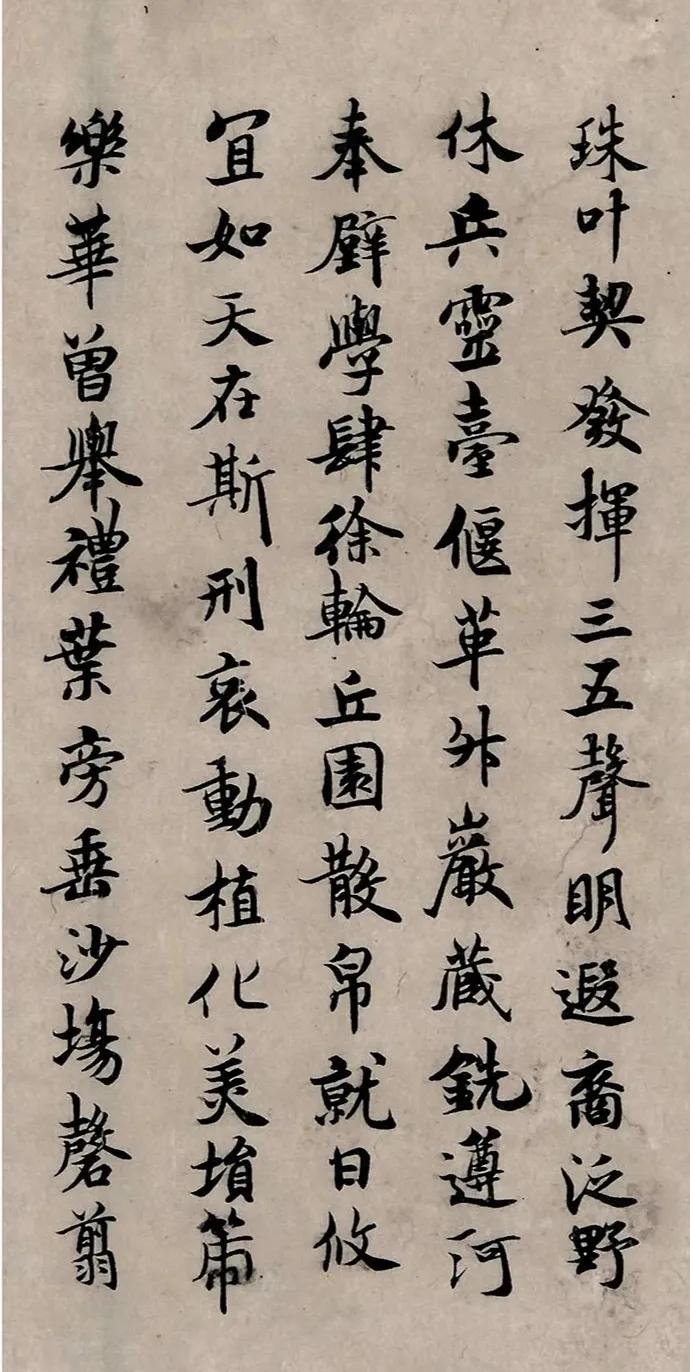 珠叶契發揮三五聲明遐裔泛野
休兵靈臺偃革舛巖蔵銑遵河
奉璧學肆徐輪丘園散帛就日攸
宜如天在斯刑哀動植化美埙箫
樂華曾舉禮葉旁垂沙場磬翦